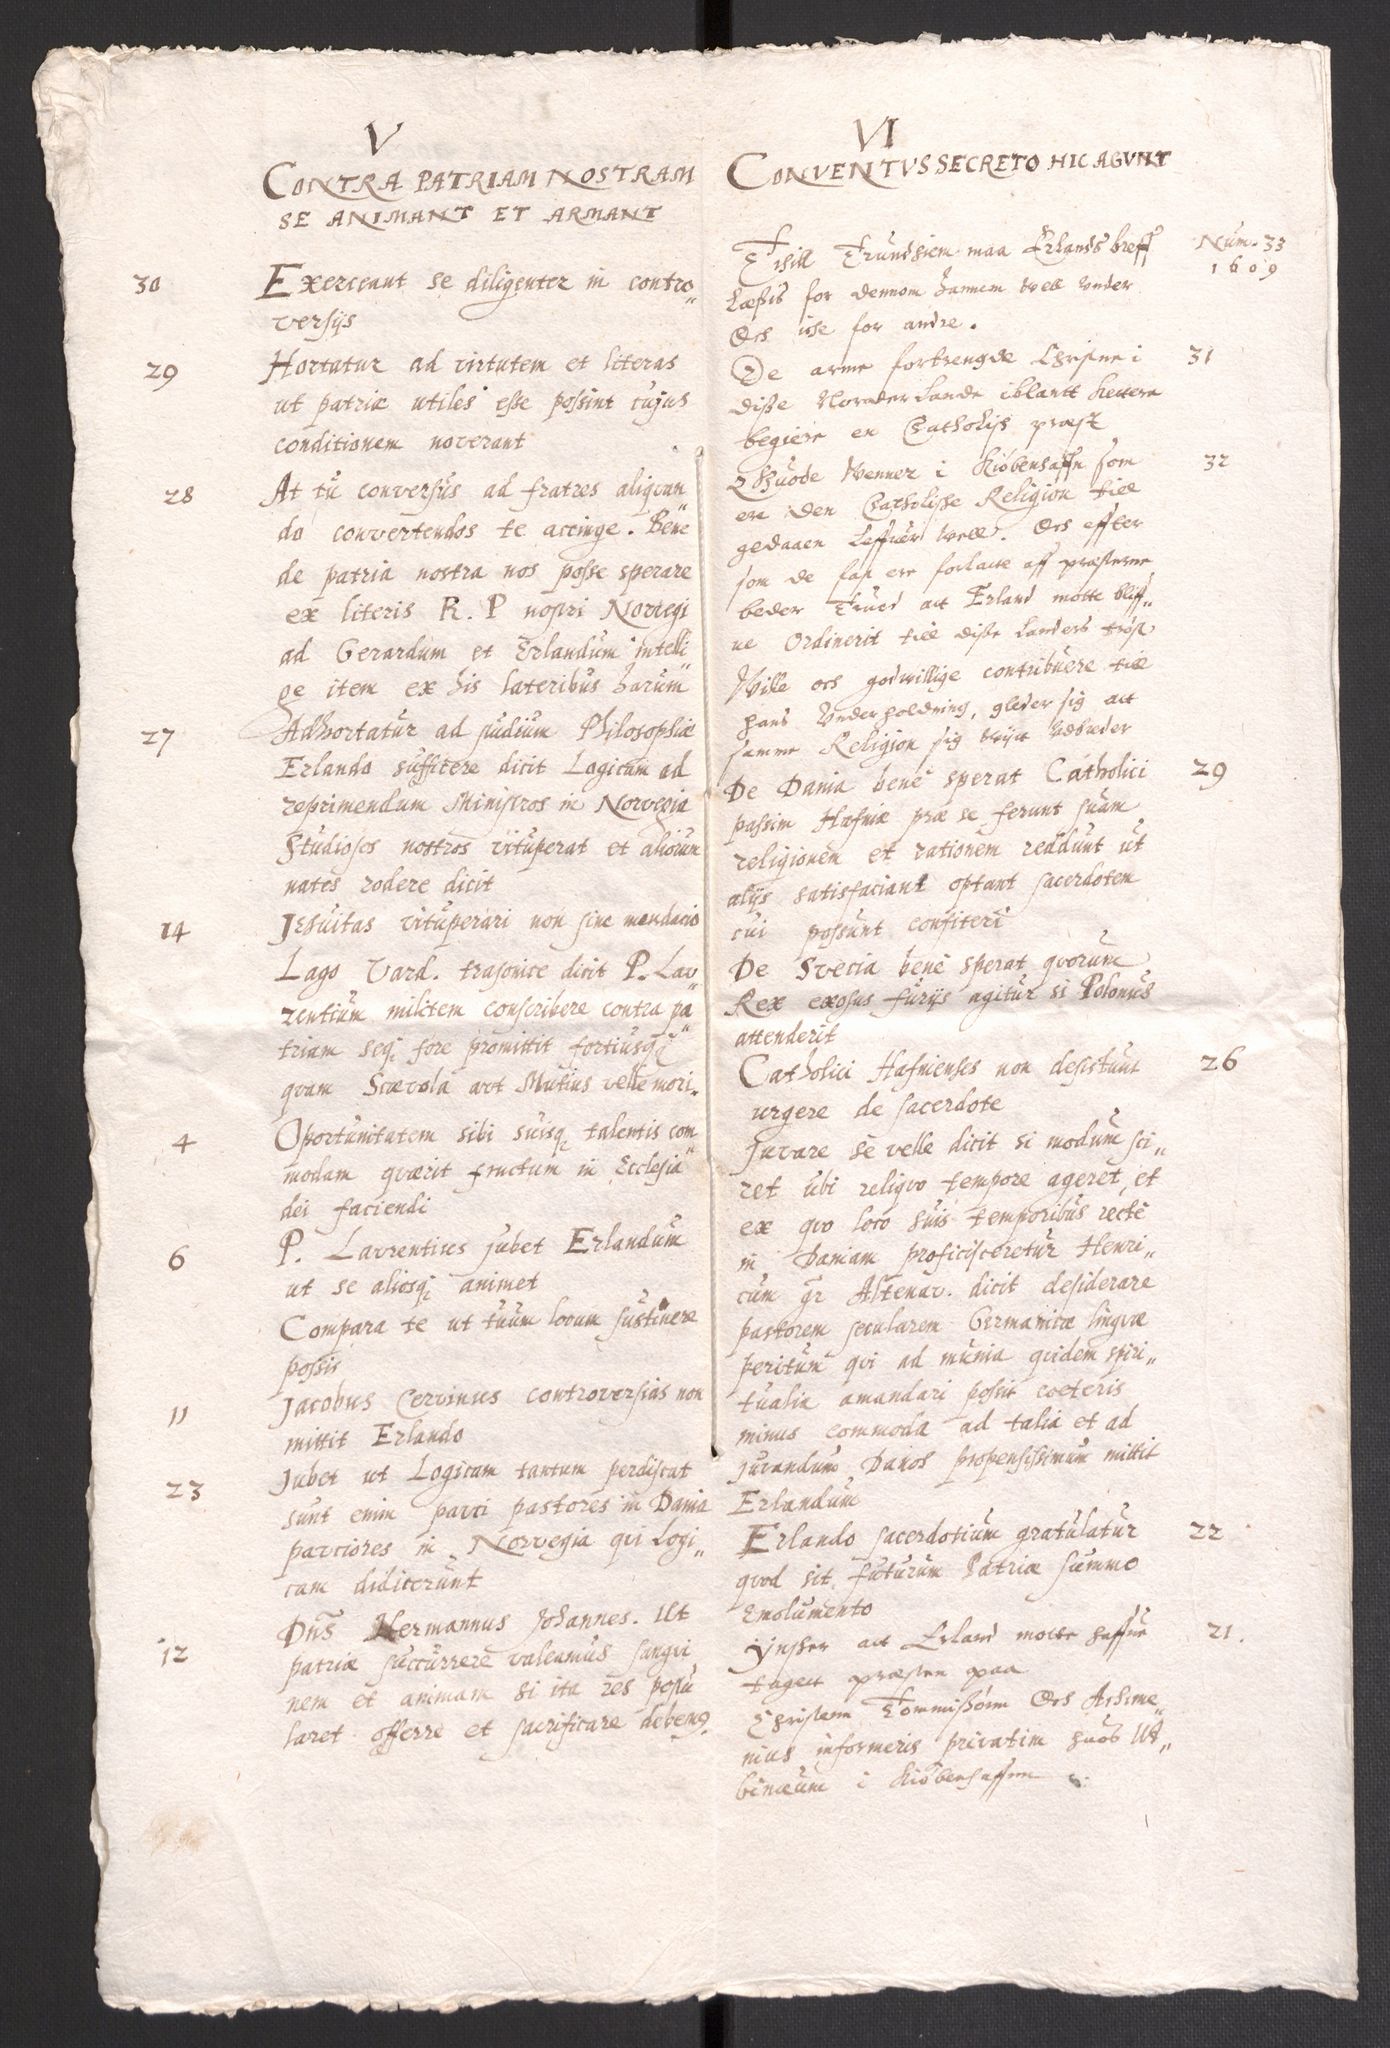 V
CONTRA PATRIAM NOSTRAM
SE ANIMANT ET ARMANT
30 Exerceant se diligenter in contro„
versijs
29 Hortatur ad virtutem et literas
ut patriæ utiles esse possint cujus
conditionem noverant
28 At tu conversus ad fratres aliqvan„
do convertendos te accinge. Bene
de patria nostra nos posse sperare
ex literis R. P nostri Norvegi
ad Gerardum et Erlandum intelli„
ge item ex his lateribus harum
27 Adhortatur ad studium Philosophiæ
Erlando sufficere dicit Logicam ad
reprimendum Ministros in Norvegia
Studiosos nostros vituperat et aliorum
nates rodere dicit
14 Jesuitas vituperari non sine mendacio
Lago Vard. trasonice dicit P. Lau„
rentium militem conscribere contra pa„
triam seq fore promittit fortiusq
qvam Scævola aut Mutius velle mori.
4 Oportunitatem sibi suisq talentis com„
modam qværit fructum in Ecclesia
dei faciendi
6 P. Laurentius jubet Erlandum
ut se aliosq animet
Compara te ut tuum locum sustinere
possis
11 Jacobus Cervinus controversias non
mittit Erlando
23 Jubet ut Logicam tantum perdiscat
sunt enim pauci pastores in Dania
pauciores in Norvegia qvi Logi„
cam didicerunt
12 Dns Hermannus Johannes. Ut
patriæ succurrere valeamus sangvi
nem et animam si ita res postu
laret offerre et sacrificare debem9.
VI
CONVENTUS SECRETO HIC AGUNT
Trundsiem maa Erlands breff Num. 33
læsis for dennom hannem vell under 1609
Och icke for andre.
De arme fortrengde Christne i 31
disse Norder Lande iblantt kettere
begiere en Catholisk præst
Gode Venner i Kiøbenhaffn som 32
ere den Catholiske Religion till
gedaaen leffuer well. Och effter
som de saa ere forlatte aff præsterne
beder Trued att Erland motte bliff„
ue Ordinerit till disse landers trøst
Wille och godwillige contribuere till
hans underholdning, gleder sig att
samme Religion sig vijtt udbreder
De Dania bene sperat Catholici 29
passim Hafniæ præ se ferunt suam
religionem et rationem reddunt ut
alijs satisfaciant optant sacerdotem
cui possunt confiteri
De Svecia bene sperat qvorum
Rex exosus furijs agitur si Polonus
attenderit
Catholici Hafnienses non desistunt 26
urgere de sacerdote
Juvare se velle dicit si modum sci„
ret ubi reliqvo tempore ageret, et
ex qvo loco suis temporibus recte
in Daniam proficisceretur Henri„
cum gr Altenav. dicit desiderare
pastorem secularem Germanicæ lingvæ
peritum qvi ad munia qvidem spiri„
tualia amandari possit coeteris
minus commoda ad talia et ad
juvandum Danos propensissimum mittit
Erlandum
Erlando sacerdotium gratulatur 22
qvod sit futurum Patriæ summo
Emolumento
ynsker att Erland motte haffue 21.
taget præsten paa
Christern Och
nius informeris privatim hoss
i Kiøbenhaffn